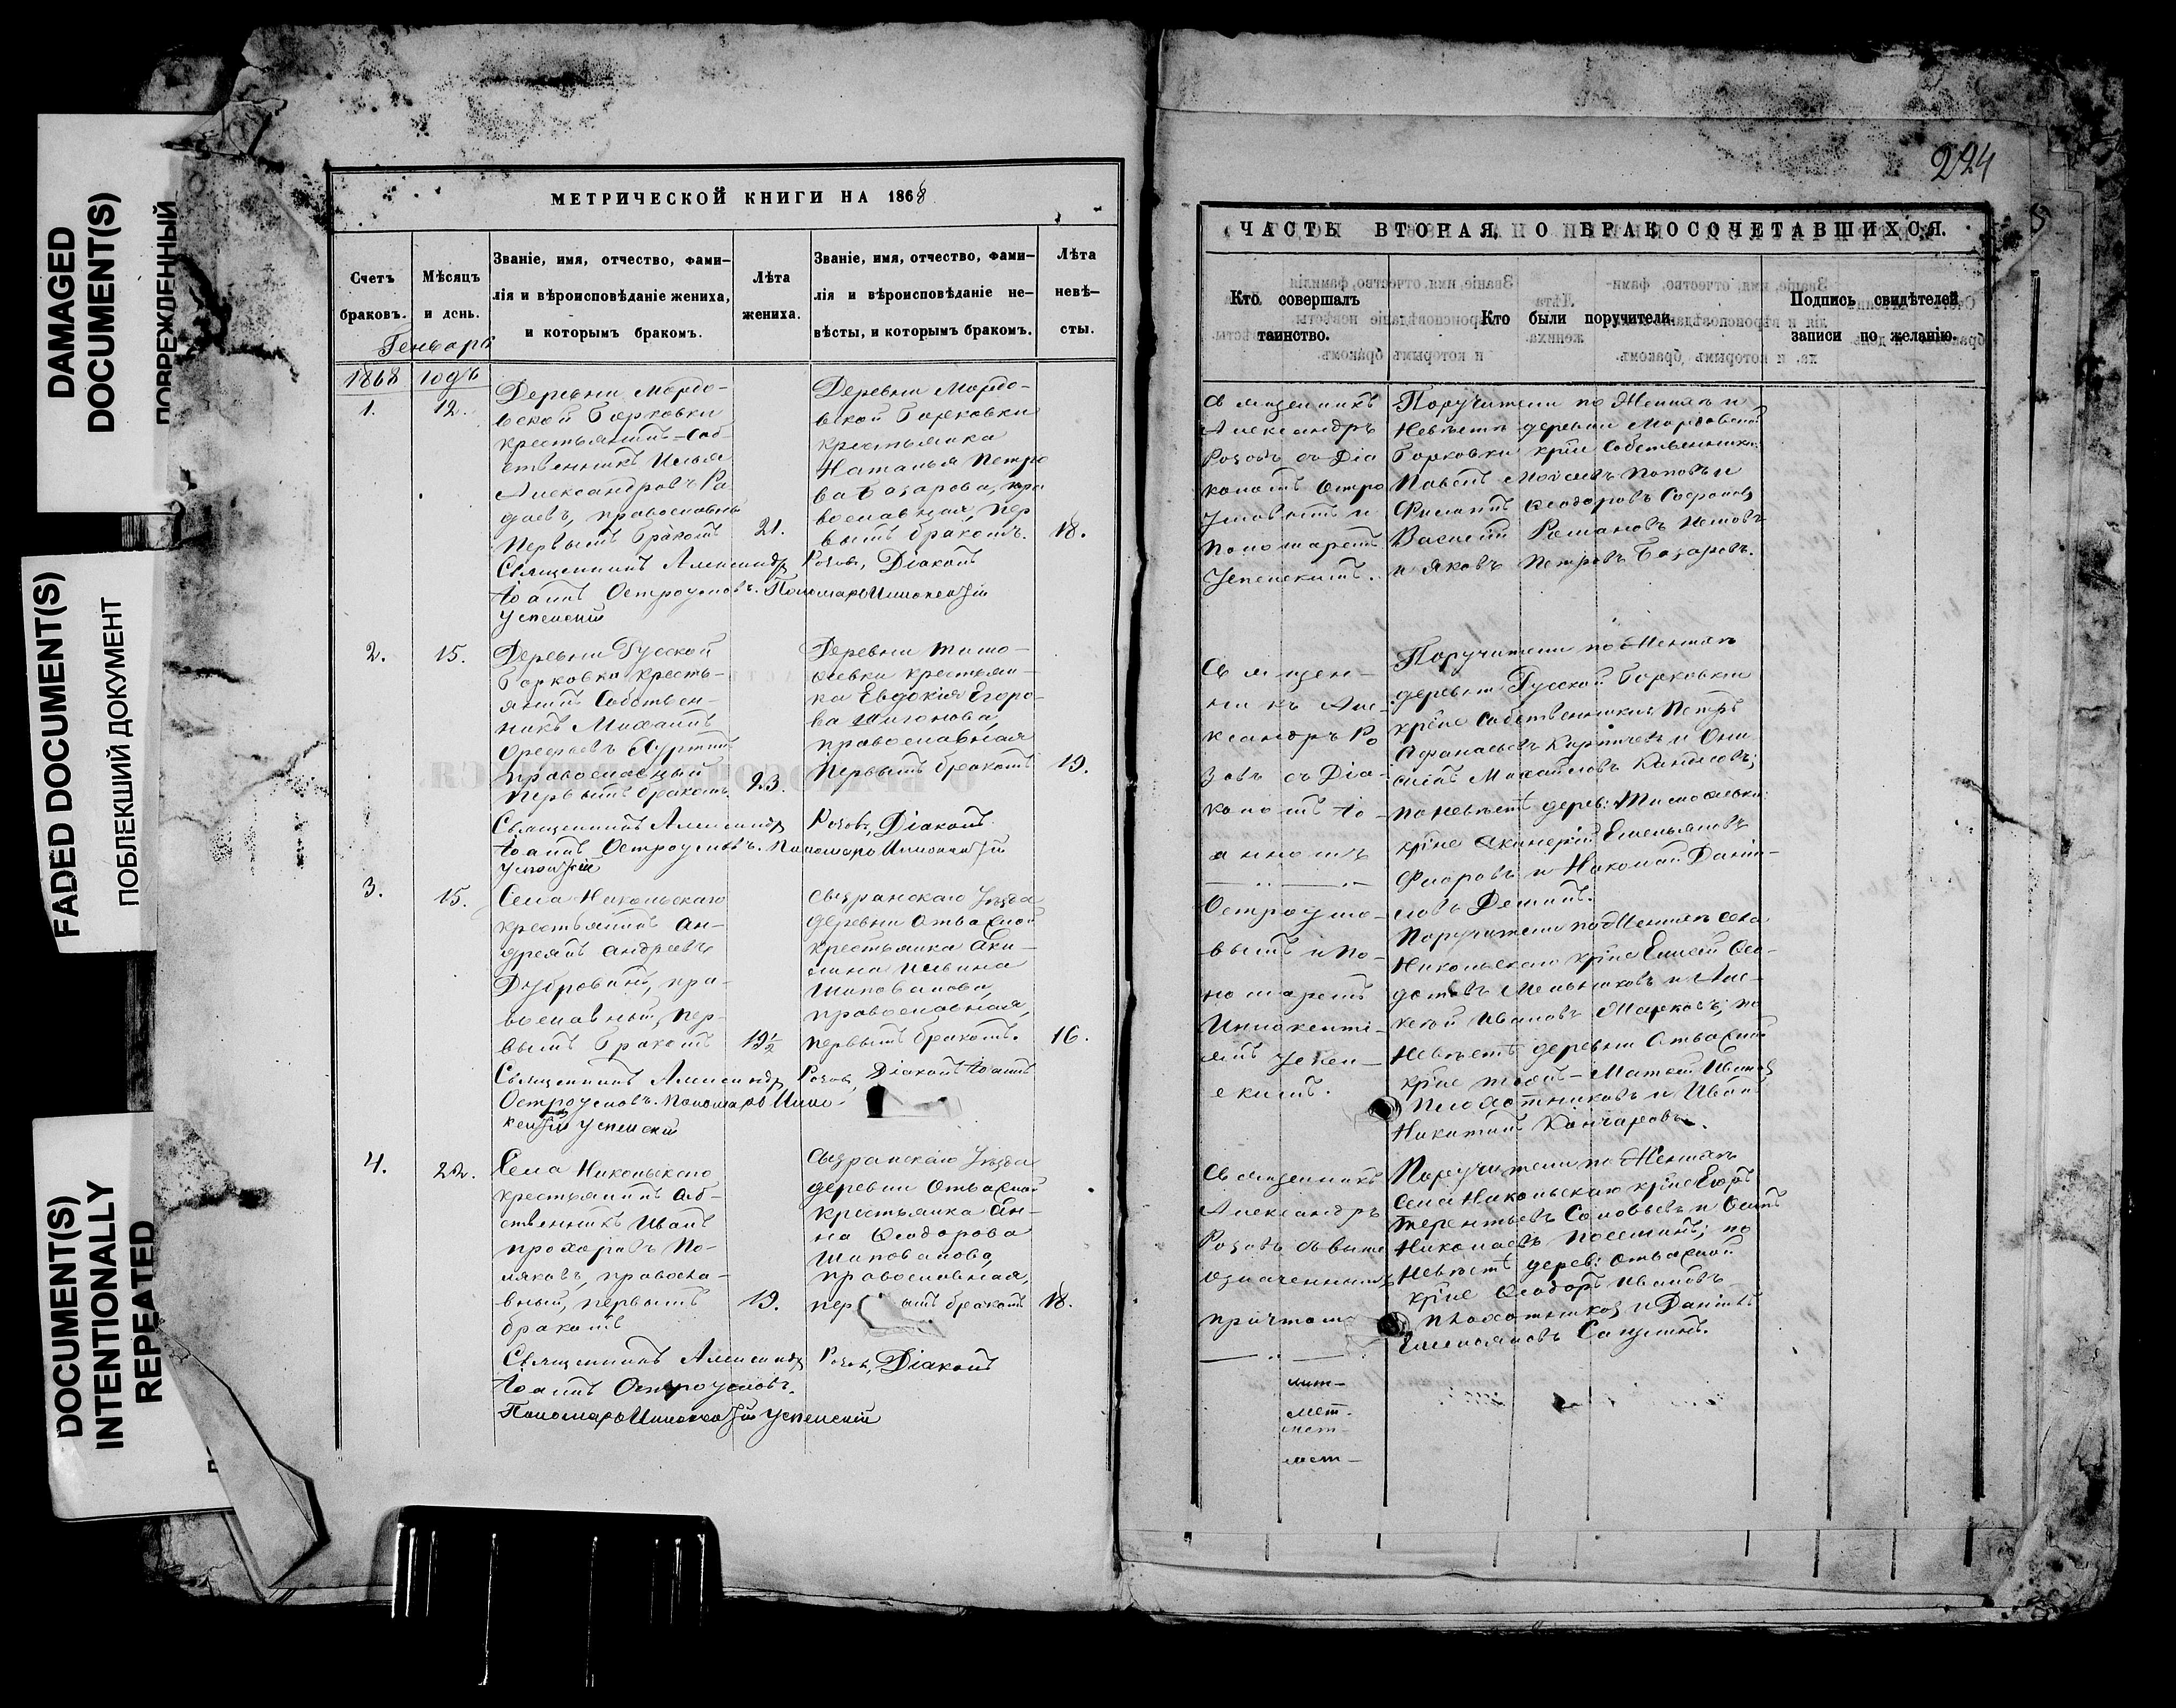 DAMAGED
DOCUMENT(S)
ПОВРЕЖДЕННЫЙ
FADED DOCUMENT(S)
ПОБЛЕКШИЙ ДОКУМЕНТ
DOCUMENT(S)
INTENTIONALLY
REPEATED
МЕТРИЧЕСКОЙ КНИГИ НА 1868
Счетъ
браковъ.
Мѣсяцъ
и день.
Званіе, имя, отчество, фами-
лія и вѣроисповѣданіе жениха,
и которымъ бракомъ.
Лѣта
жениха.
Званіе, имя, отчество, фами-
лія и вѣроисповѣданіе не-
вѣсты, и которымъ бракомъ.
Лѣта
невѣ-
сты.
Генварь
1868 годъ
1.
12.
Деревни Мордо-
вской Борковки
крестьянинъ-соб-
ственникъ Илья
Александровъ Ра
даевъ, православны
первымъ бракомъ
21.
Деревни Мордо-
вской Борковки
крестьянка
Наталья Петро
ва Базарова, пра
вославная, пер
вымъ бракомъ.
18.
Священникъ Александръ Розовъ, Діаконъ
Іоаннъ Остроумовъ. Пономарь Иннокентій
Успенскій
2.
15.
Деревни Русской
Борковки кресть-
янинъ Собствен-
никъ Михаилъ
православный
первымъ бракомъ
23.
Деревни Тимо-
феевки крестьян-
ка Евдокія Егоро-
ва
православная
первымъ бракомъ
19.
Священникъ Александръ Розовъ, Діаконъ
Іоаннъ Остроумовъ. Пономарь Иннокентій
Успенскій
3.
15.
Села Никольскаго
крестьянинъ Ан-
дреянъ Андреевъ
Дубровинъ, пра-
вославный, пер-
вымъ бракомъ
19½
Сызранскаго Уѣзда
деревни Отважной
крестьянка Аки-
лина Ильина
Шаповалова,
православная,
первымъ бракомъ.
16.
Священникъ Александръ Розовъ, Діаконъ Іоаннъ
Остроумовъ. Пономарь Инно-
кентій Успенскій
4.
22.
Села Никольскаго
крестьянинъ соб-
ственникъ Иванъ
Прохоровъ По-
ляковъ, правосла-
вный, первымъ
бракомъ
19.
Сызранскаго Уѣзда
деревни Отважной
крестьянка Ан-
на Ѳеодорова
Шаповалова,
православная,
пер ымъ бракомъ
18.
Священникъ Александръ Розовъ, Діаконъ
Іоаннъ Остроумовъ.
Пономарь Иннокентій Успенскій
224
ЧАСТЬ ВТОРАЯ, О БРАКОСОЧЕТАВШИХСЯ.
Кто совершалъ
таинство.
Кто были поручители.
Подпись свидѣтелей
записи по желанію.
Священникъ
Александръ
Розовъ съ Діа
кономъ Остро
умовымъ и
Пономаремъ
Успенскимъ.
Поручители по Женихѣ и
Невѣстѣ деревни Мордовской
Борковки кр̅не Собственники
Павелъ Моисеевъ Поповъ и
Филиппъ Ѳеодоровъ Сафоновъ
Василій Романовъ
и Яковъ Петровъ Базаровъ.
Священ-
никъ Але-
ксандръ Ро
зовъ съ Діа-
кономъ Іо-
анномъ
Остроумо-
вымъ и По-
номаремъ
Иннокенті-
емъ Успен-
скимъ.
Поручители по Женихѣ
деревни Русской Борковки
кр̅не Собственники Петръ
Афанасьевъ Кирпичевъ и Они
симъ Михайловъ
по невѣстѣ дерев: Тимофеевки
кр̅не Емельяновъ
Фроловъ и Николай Дани-
ловъ
Поручители по Женихѣ села
Никольскаго кр̅не Елисей Ѳео-
дотовъ Мельниковъ и Але-
ксѣй Ивановъ Марковъ; по
Невѣстѣ деревни Отважной
Плохотниковъ и Иванъ
Никитинъ
Священникъ
Александръ
Розовъ съ выше
означеннымъ
причтомъ
Поручители по Женихѣ
Села Никольскаго кр̅не Егоръ
Терентьевъ Соловьевъ и Осипъ
Николаевъ по
Невѣстѣ дерев: Отважной
кр̅не Ѳеодоръ Ивановъ
Плохотниковъ и Даніилъ
Емельяновъ